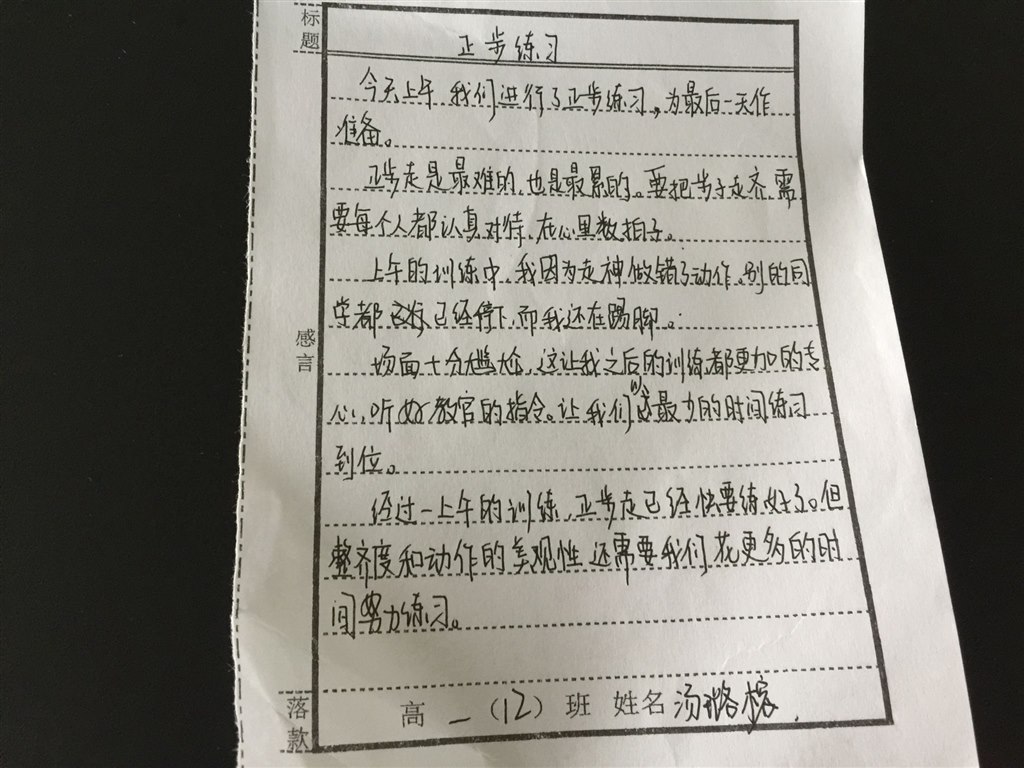 标题
正步练习
今天上午我们进行了正步练习,为最后一天作
准备。
正步走是最难的,也是最累的。要把步子走齐,需
要每个人都认真对待,在心里数拍子。
上午的训练中,我因为走神做错了动作。别的同
学都已经停下,而我还在踢脚。
感言
场面十分尴尬,这让我之后的训练都更加的专
心,听好教官的指令。让我们以最少的时间练习
到位。
经过一上午的训练,正步走已经快要练好了。但
整齐度和动作的美观性还需要我们花更多的时
间努力练习。
落款
高一(12)班 姓名 汤璐榕